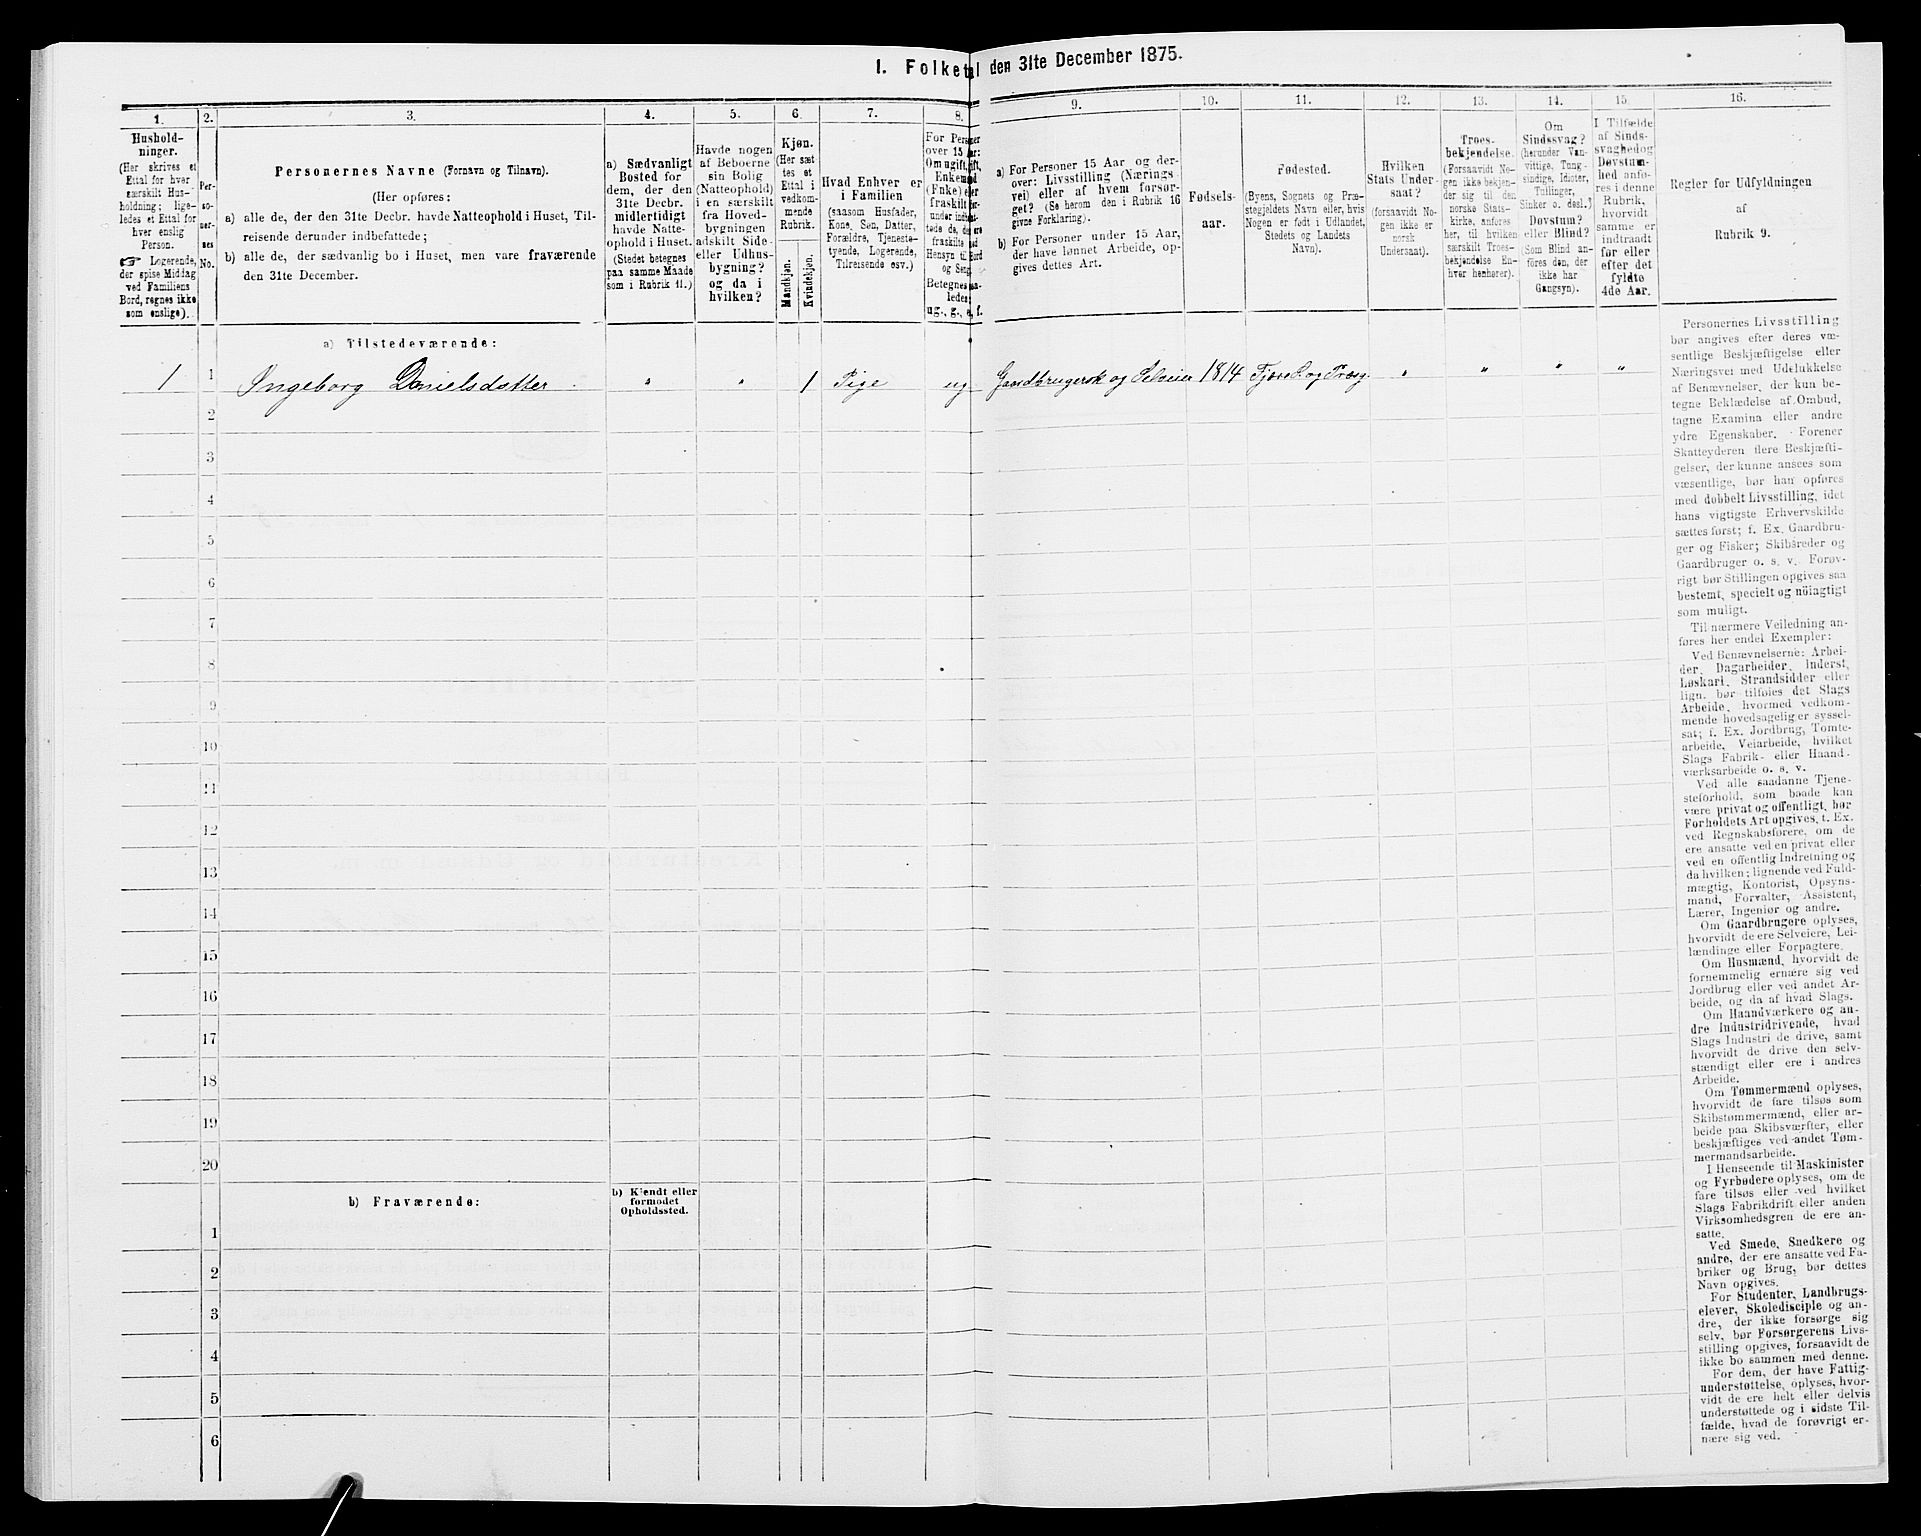 I. Folketal den 31te December 1875.
1. 2. 3. 4. 5. 6. 7. 8. 9. 10. 11. 12. 13. 14. 15. 16.
Hushold-
ninger.
(Her skrives et
Ettal for hver
særskilt Hus-
holdning; lige-
ledes et Ettal for
hver enslig
Person.
☞ Logerende,
der spise Middag
ved Familiens
Bord, regnes ikke
som enslige).
Per-
so-
ner-
nes
No.
Personernes Navne (Fornavn og Tilnavn).
(Her opføres:
a) alle de, der den 31te Decbr. havde Natteophold i Huset, Til-
reisende derunder indbefattede;
b) alle de, der sædvanlig bo i Huset, men vare fraværende
den 31te December.
a) Sædvanligt
Bosted for
dem, der den
31te Decbr.
midlertidigt
havde Natte-
ophold i Huset.
(Stedet betegnes
paa samme Maade
som i Rubrik 11.)
Havde nogen
af Beboerne
sin Bolig
(Natteophold)
i en særskilt
fra Hoved-
bygningen
adskilt Side-
eller Udhus-
bygning?
og da i
hvilken?
Kjøn.
(Her sæt-
tes et
Ettal i
vedkom-
mende
Rubrik.
Mandkjøn.
Kvindekjøn.
Hvad Enhver er
i Familien
(saasom Husfader,
Kone, Søn, Datter,
Forældre, Tjeneste-
tyende, Logerende,
Tilreisende osv.)
For Personer
over 15 Aar:
Om ugift, gift,
Enkemand
(Enke) eller
fraskilt
Hensyn til Bord
og Seng.
Betegnes saa-
ledes:
ug., g., e., f.
a) For Personer 15 Aar og der-
over: Livsstilling (Nærings
vei) eller af hvem forsør-
get? (Se herom den i Rubrik 16
givne Forklaring).
b) For Personer under 15 Aar,
der have lønnet Arbeide, op-
gives dettes Art.
Fødsels-
aar.
Fødested.
(Byens, Sognets og Præ-
stegjeldets Navn eller, hvis
Nogen er født i Udlandet,
Stedets og Landets
Navn).
Hvilken
Stats Under-
saat?
(forsaavidt No-
gen ikke er
norsk
Undersaat).
Troes-
bekjendelse.
(Forsaavidt No-
gen ikke bekjen-
der sig til den
norske Stats-
kirke, anføres
her, til hvilken
særskilt Troes-
bekjendelse En-
hver henhører).
Om
Sindssvag?
(herunder Van-
vittige, Tung-
sindige, Idioter,
Tullinger,
Sinker o. desl.)
Døvstum?
eller Blind?
(Som Blind an-
føres den, der
ikke har
Gangsyn).
I Tilfælde
af Sinds-
svaghed og
Døvstum-
hed anfø-
res i denne
Rubrik,
hvorvidt
samme er
indtraadt
før eller
efter det
fyldte
4de Aar.
Regler for Udfyldningen
af
Rubrik 9.
a) Tilstedeværende:
1 1 Ingeborg Danielsdatter " " 1 Pige ug Gaardbrugersk og Selveier 1814 " " " "
2
3
4
5
6
7
8
9
10
11
12
13
14
15
16
17
18
19
20
b) Fraværende:
b) Kjendt eller
formodet
Opholdssted.
1
2
3
4
5
6
Personernes Livsstilling
bør angives efter deres væ-
sentlige Beskjæftigelse eller
Næringsvei med Udelukkelse
af Benævnelser, der kun be-
tegne Beklædelse af Ombud,
tagne Examina eller andre
ydre Egenskaber. Forener
Skatteyderen flere Beskjæfti-
gelser, der kunne ansees som
væsentlige, bør han opføres
med dobbelt Livsstilling, idet
hans vigtigste Erhvervskilde
sættes først; f. Ex. Gaardbru-
ger og Fisker; Skibsreder og
Gaardbruger o. s. v. Forøv-
rigt bør Stillingen opgives saa
bestemt, specielt og nöiagtigt
som muligt.
Til nærmere Veiledning an-
føres her endel Exempler:
Ved Benævnelserne: Arbei-
der, Dagarbeider, Inderst,
Løskarl, Strandsidder eller
lign. bør tilføies det Slags
Arbeide, hvormed vedkom-
mende hovedsagelig er syssel-
sat; f. Ex. Jordbrug, Tomte-
arbeide, Veiarbeide, hvilket
Slags Fabrik- eller Haand-
værksarbeide o. s. v.
Ved alle saadanne Tjene-
steforhold, som baade kan
være privat og offentligt, bør
Forholdets Art opgives, t. Ex.
ved Regnskabsførere, om de
ere ansatte ved en privat eller
ved en offentlig Indretning og
da hvilken; lignende ved Fuld-
mægtig, Kontorist, Opsyns-
mand, Forvalter, Assistent,
Lærer, Ingeniør og andre.
Om Gaardbrugere oplyses,
hvorvidt de ere Selveiere, Lei-
lændinge eller Forpagtere.
Om Husmænd, hvorvidt de
fornemmelig ernære sig ved
Jordbrug eller ved andet Ar-
beide, og da af hvad Slags.
Om Haandværkere og an-
dre Industridrivende, hvad
Slags Industri de drive, samt
hvorvidt de drive den selv-
stændigt eller ere i andres
Arbeide.
Om Tømmermænd oplyses,
hvorvidt de fare tilsøs som
Skibstømmermænd, eller ar-
beide paa Skibsværfter, eller
beskjæftiges ved andet Tøm-
mermandsarbeide.
I Henseende til Maskinister
og Fyrbødere oplyses, om de
fare tilsøs eller ved hvilket
Slags Fabrikdrift eller anden
Virksomhedsgren de ere an-
satte.
Ved Smede, Snedkere og
andre, der ere ansatte ved Fa-
briker og Brug, bør dettes
Navn opgives.
For Studenter, Landbrugs-
elever, Skoledisciple og an-
dre, der ikke forsørge sig
selv, bør Forsørgerens Livs-
stilling opgives, forsaavidt de
ikke bo sammen med denne.
For dem, der have Fattig-
understøttelse, oplyses, hvor-
vidt de ere helt eller delvis
understøttede og i sidste Til-
fælde, hvad de forøvrigt er-
nære sig ved.